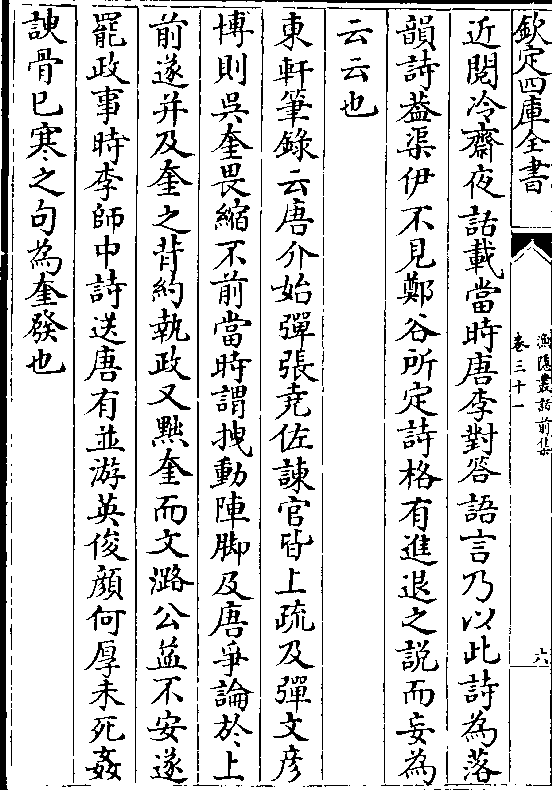 欽定四庫全書
漁隱叢話前集
卷三十一
六
近閱冷齋夜話載當時唐李對答語言乃以此詩為落
韻詩葢渠伊不見鄭谷所定詩格有進退之說而妄為
云云也
東軒筆錄云唐介始彈張堯佐諫官皆上疏及彈文彦
博則吳奎畏縮不前當時謂拽動陣脚及唐爭論於上
前遂并及奎之背約執政又黜奎而文潞公益不安遂
罷政事時李師中詩送唐有並游英俊顔何厚未死姦
諛骨已寒之句為奎發也